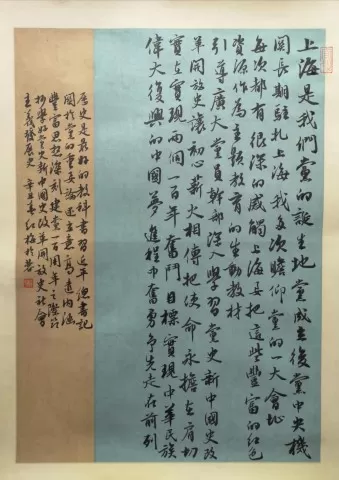 上海是我們黨的誕生地黨成立後黨中央機
関長期駐扎上海我多次瞻仰黨的一大會址
每次都有很深的感觸上海要把這些豐富的紅色
資源作為主題教育的生動教材
引導廣大黨員幹部深入學習黨史新中國史改
革開放史讓初心薪火相傳把使命永擔在肩切
實在實現兩個一百年奮鬥目標實現中華民族
偉大復興的中國夢進程中奮勇爭先走在前列
歷史是最好的教科書習近平總書記
関於黨的重要論述立意高遠內涵
豐富思想深刻建黨一百周年之際節
抄學好黨史新中國史改革開放史社會
主義發展史 辛丑 紅梅